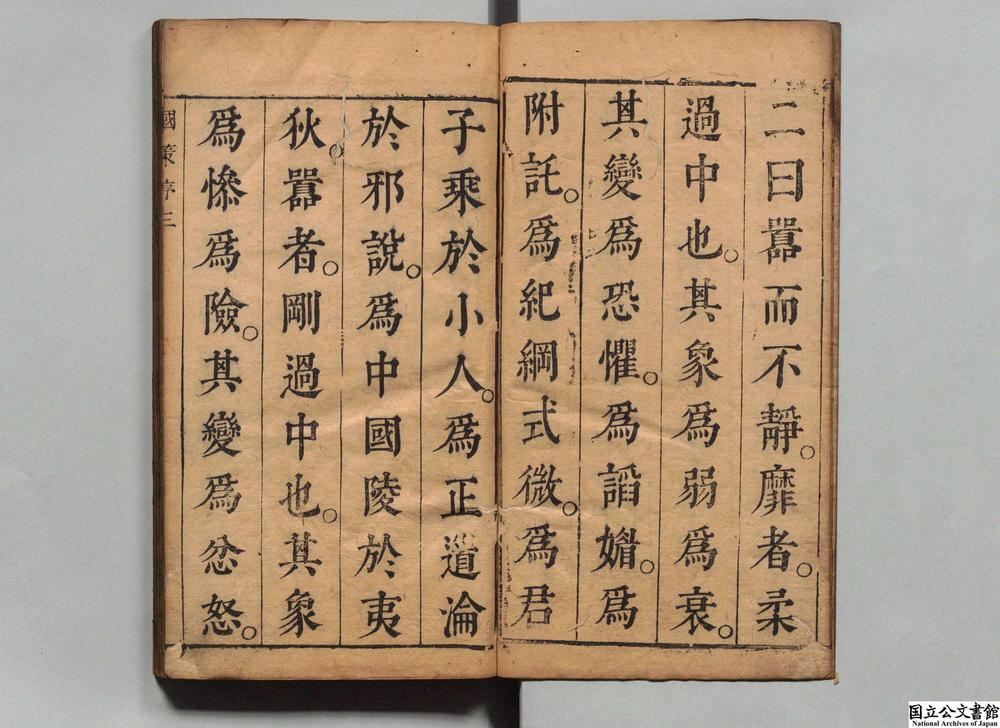 二曰囂而不靜。靡者。柔
過中也。其象爲弱爲衰。
其變爲恐懼。爲謟媢。爲
附託。爲紀綱式微。爲君
子乘於小人。爲正道淪
於邪說。爲中國陵於夷
狄。囂者。剛過中也。其象
爲慘爲險。其變爲忿怒。
國策序三
国立公文書館
National Archives of Japan